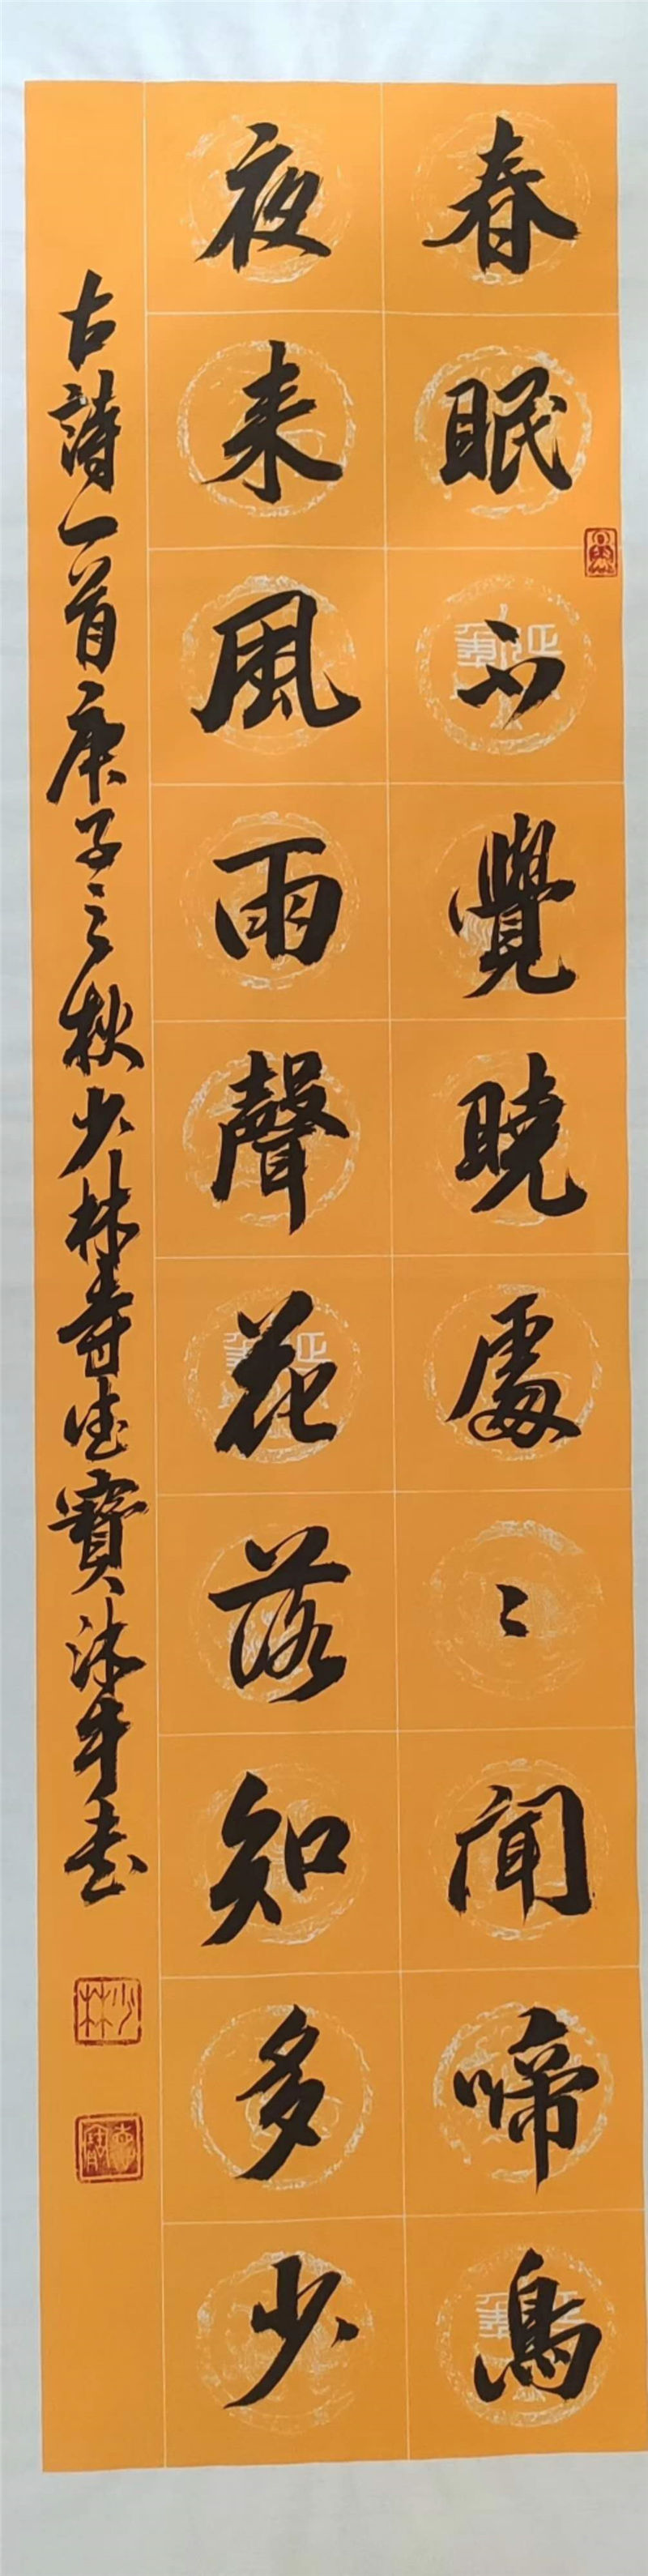 春眠不覺曉處〻聞啼鳥
夜来風雨聲花落知多少
古詩一首庚子之秋少林寺延寶沐手書
少林